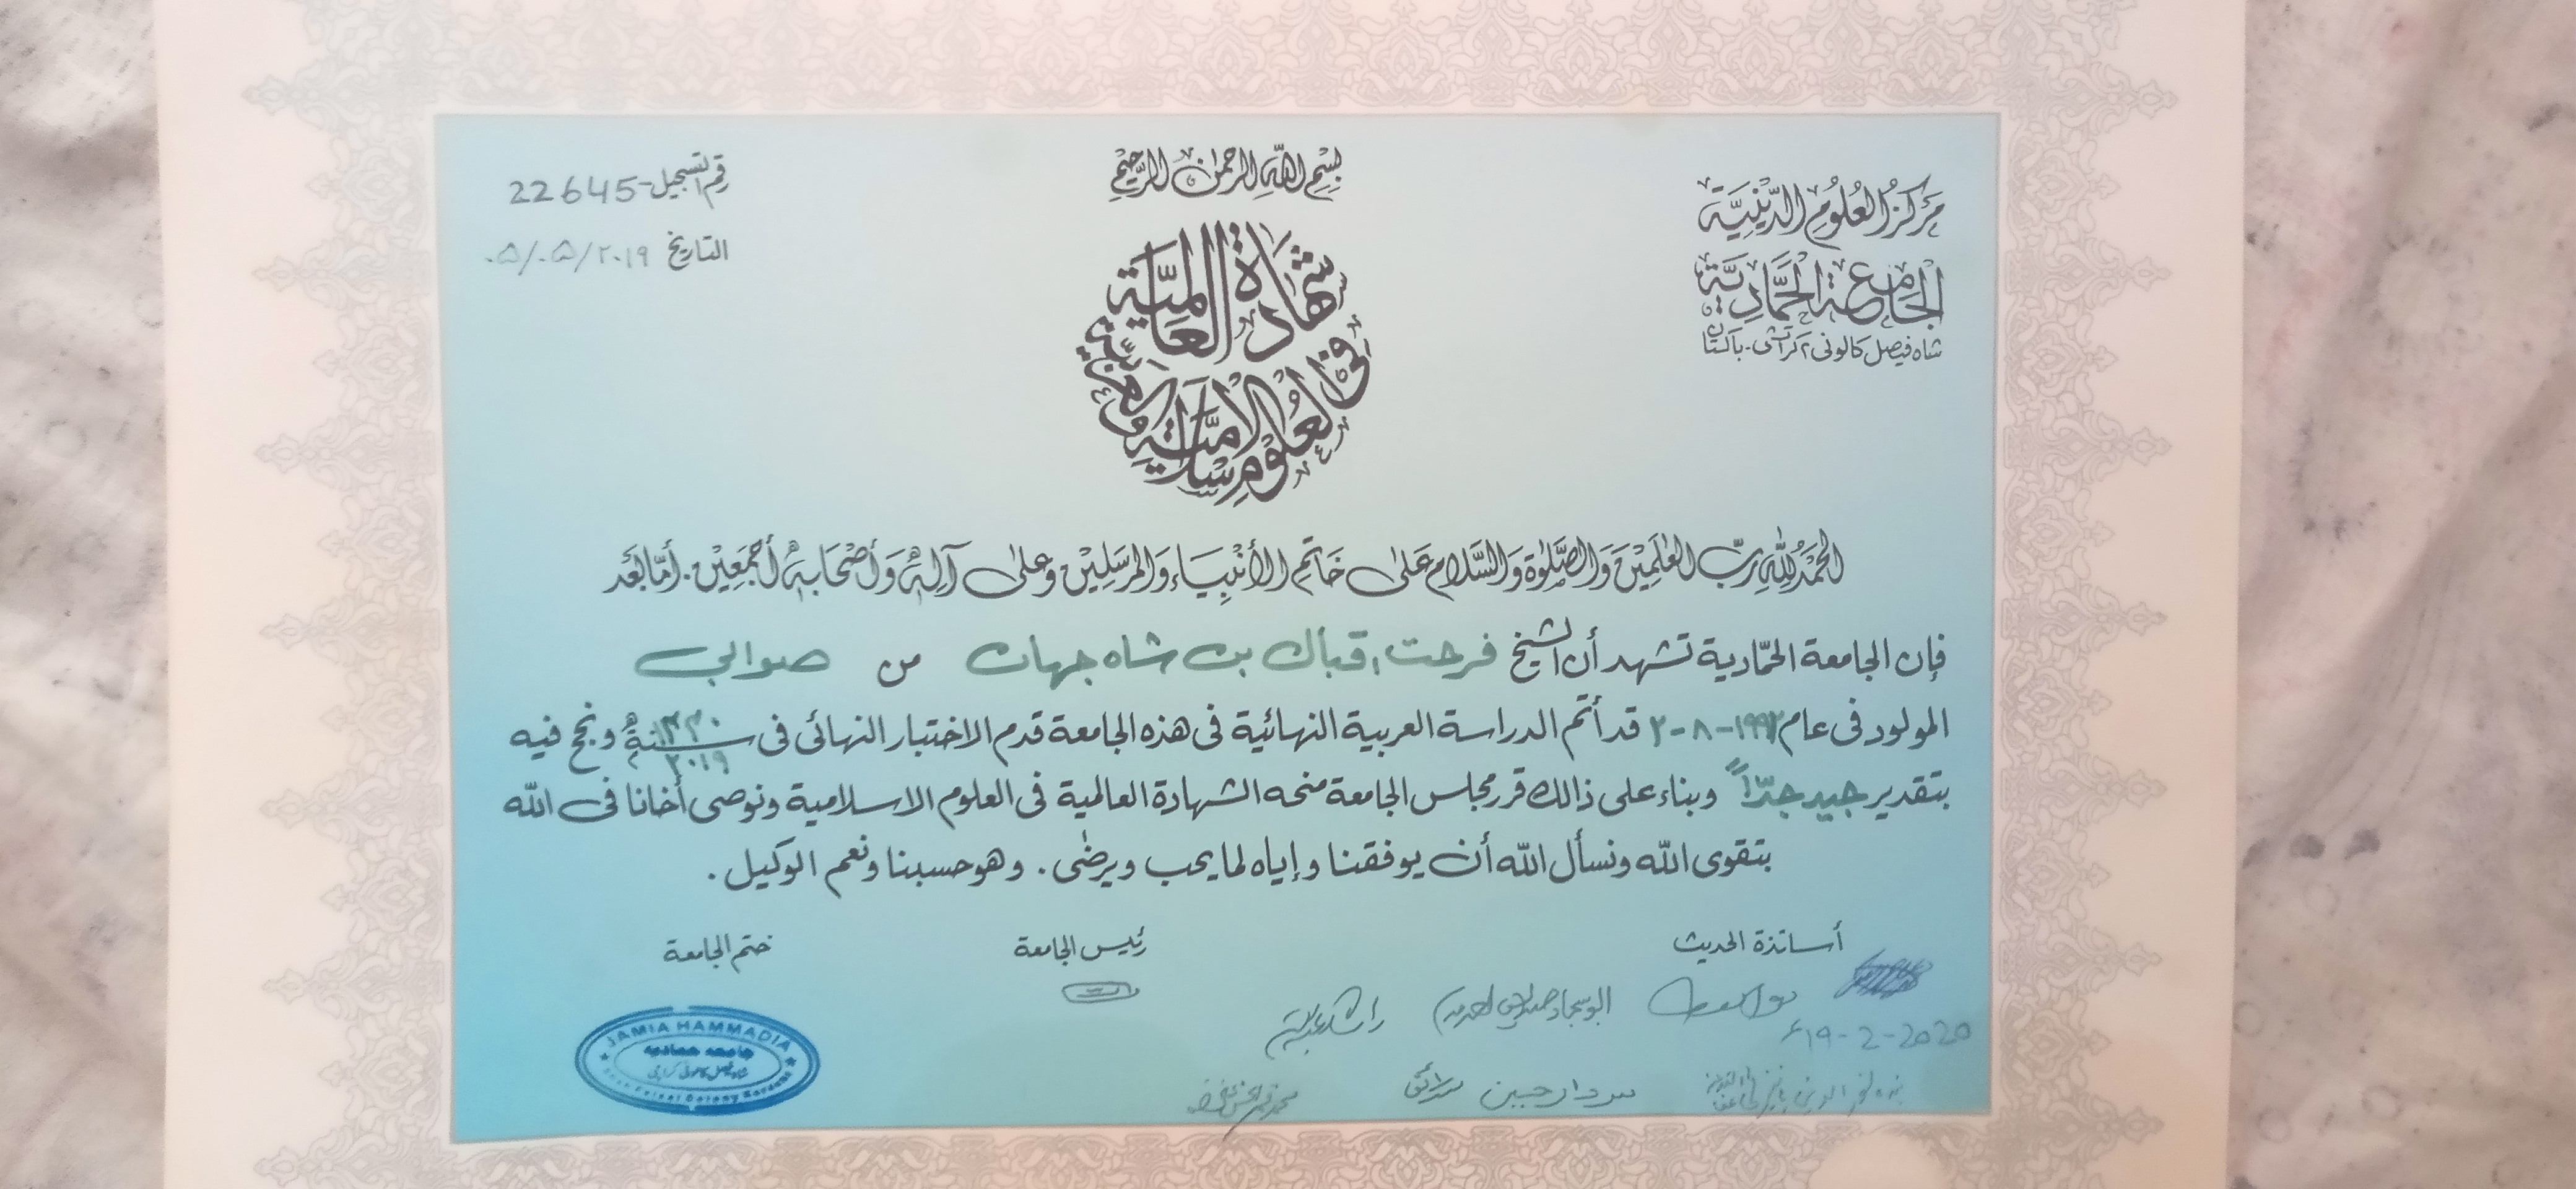 بِسْمِ اللهِ الرَّحْمٰنِ الرَّحِيْمِ
رقم التسجيل-22645
التاريخ ۰۵/۰۵/۲۰۱۹
مَرْكَزُ الْعُلُوْمِ الدِّيْنِيَّةِ
الْجَامِعَةُ الْحَمَّادِيَّة
شاہ فیصل کالونی ۲ کراتشی۔باکستان
شهادة العالمية
في العلوم الإسلامية والعربية
الْحَمْدُ لِلّٰهِ رَبِّ الْعٰلَمِيْنَ وَالصَّلٰوةُ وَالسَّلَامُ عَلٰى خَاتَمِ الأَنْبِيَاءِ وَالْمُرْسَلِيْنَ وَعَلٰى آلِهٖ وَأَصْحَابِهٖ أَجْمَعِيْنَ. أَمَّا بَعْد
فإن الجامعة الحمّادية تشهد أن الشيخ فرحت اقبال بن شاه جهان من صوابی
المولود فى عام ۱۹۹۲-۸-۲ قد أتم الدراسة العربية النهائية فى هذه الجامعة قدم الاختبار النهائى فى سنة ۲۰۱۹ ونجح فيه
بتقدير جيد جدّاً وبناء على ذالك قرر مجلس الجامعة منحه الشهادة العالمية فى العلوم الاسلامية ونوصى أخانا فى الله
بتقوى الله ونسأل الله أن يوفقنا وإياه لما يحب ويرضٰى. وهو حسبنا ونعم الوكيل.
أساتذة الحديث
رئيس الجامعة
ختم الجامعة
19-2-2020
سردار حسین
JAMIA HAMMADIA
جامعہ حمادیہ
شاہ فیصل کالونی کراچی
Shah Faisal Colony Karachi